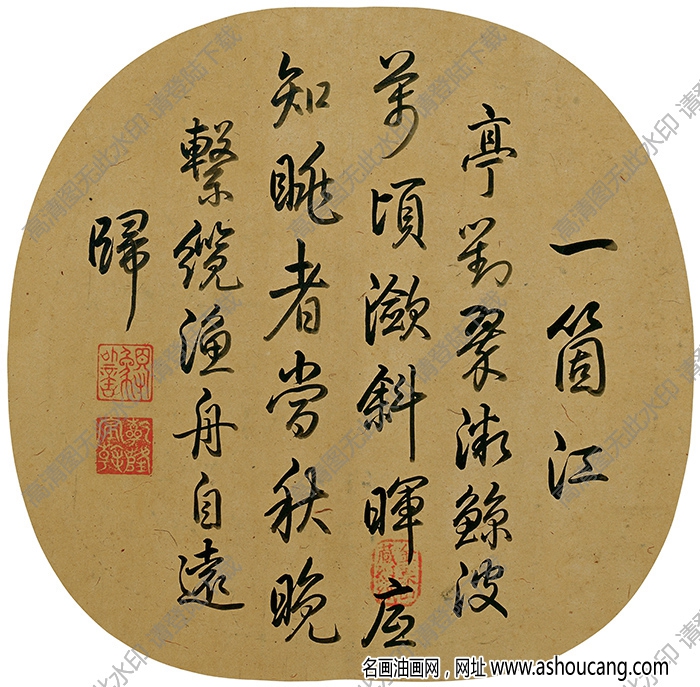 一箇江
亭對翠微鯨波
萬頃瀲斜暉應
知眺者當秋晚
繫纜漁舟自遠
歸
乾隆宸翰
高清图无此水印 请登陆下载
名画油画网，网址 www.ashoucang.com